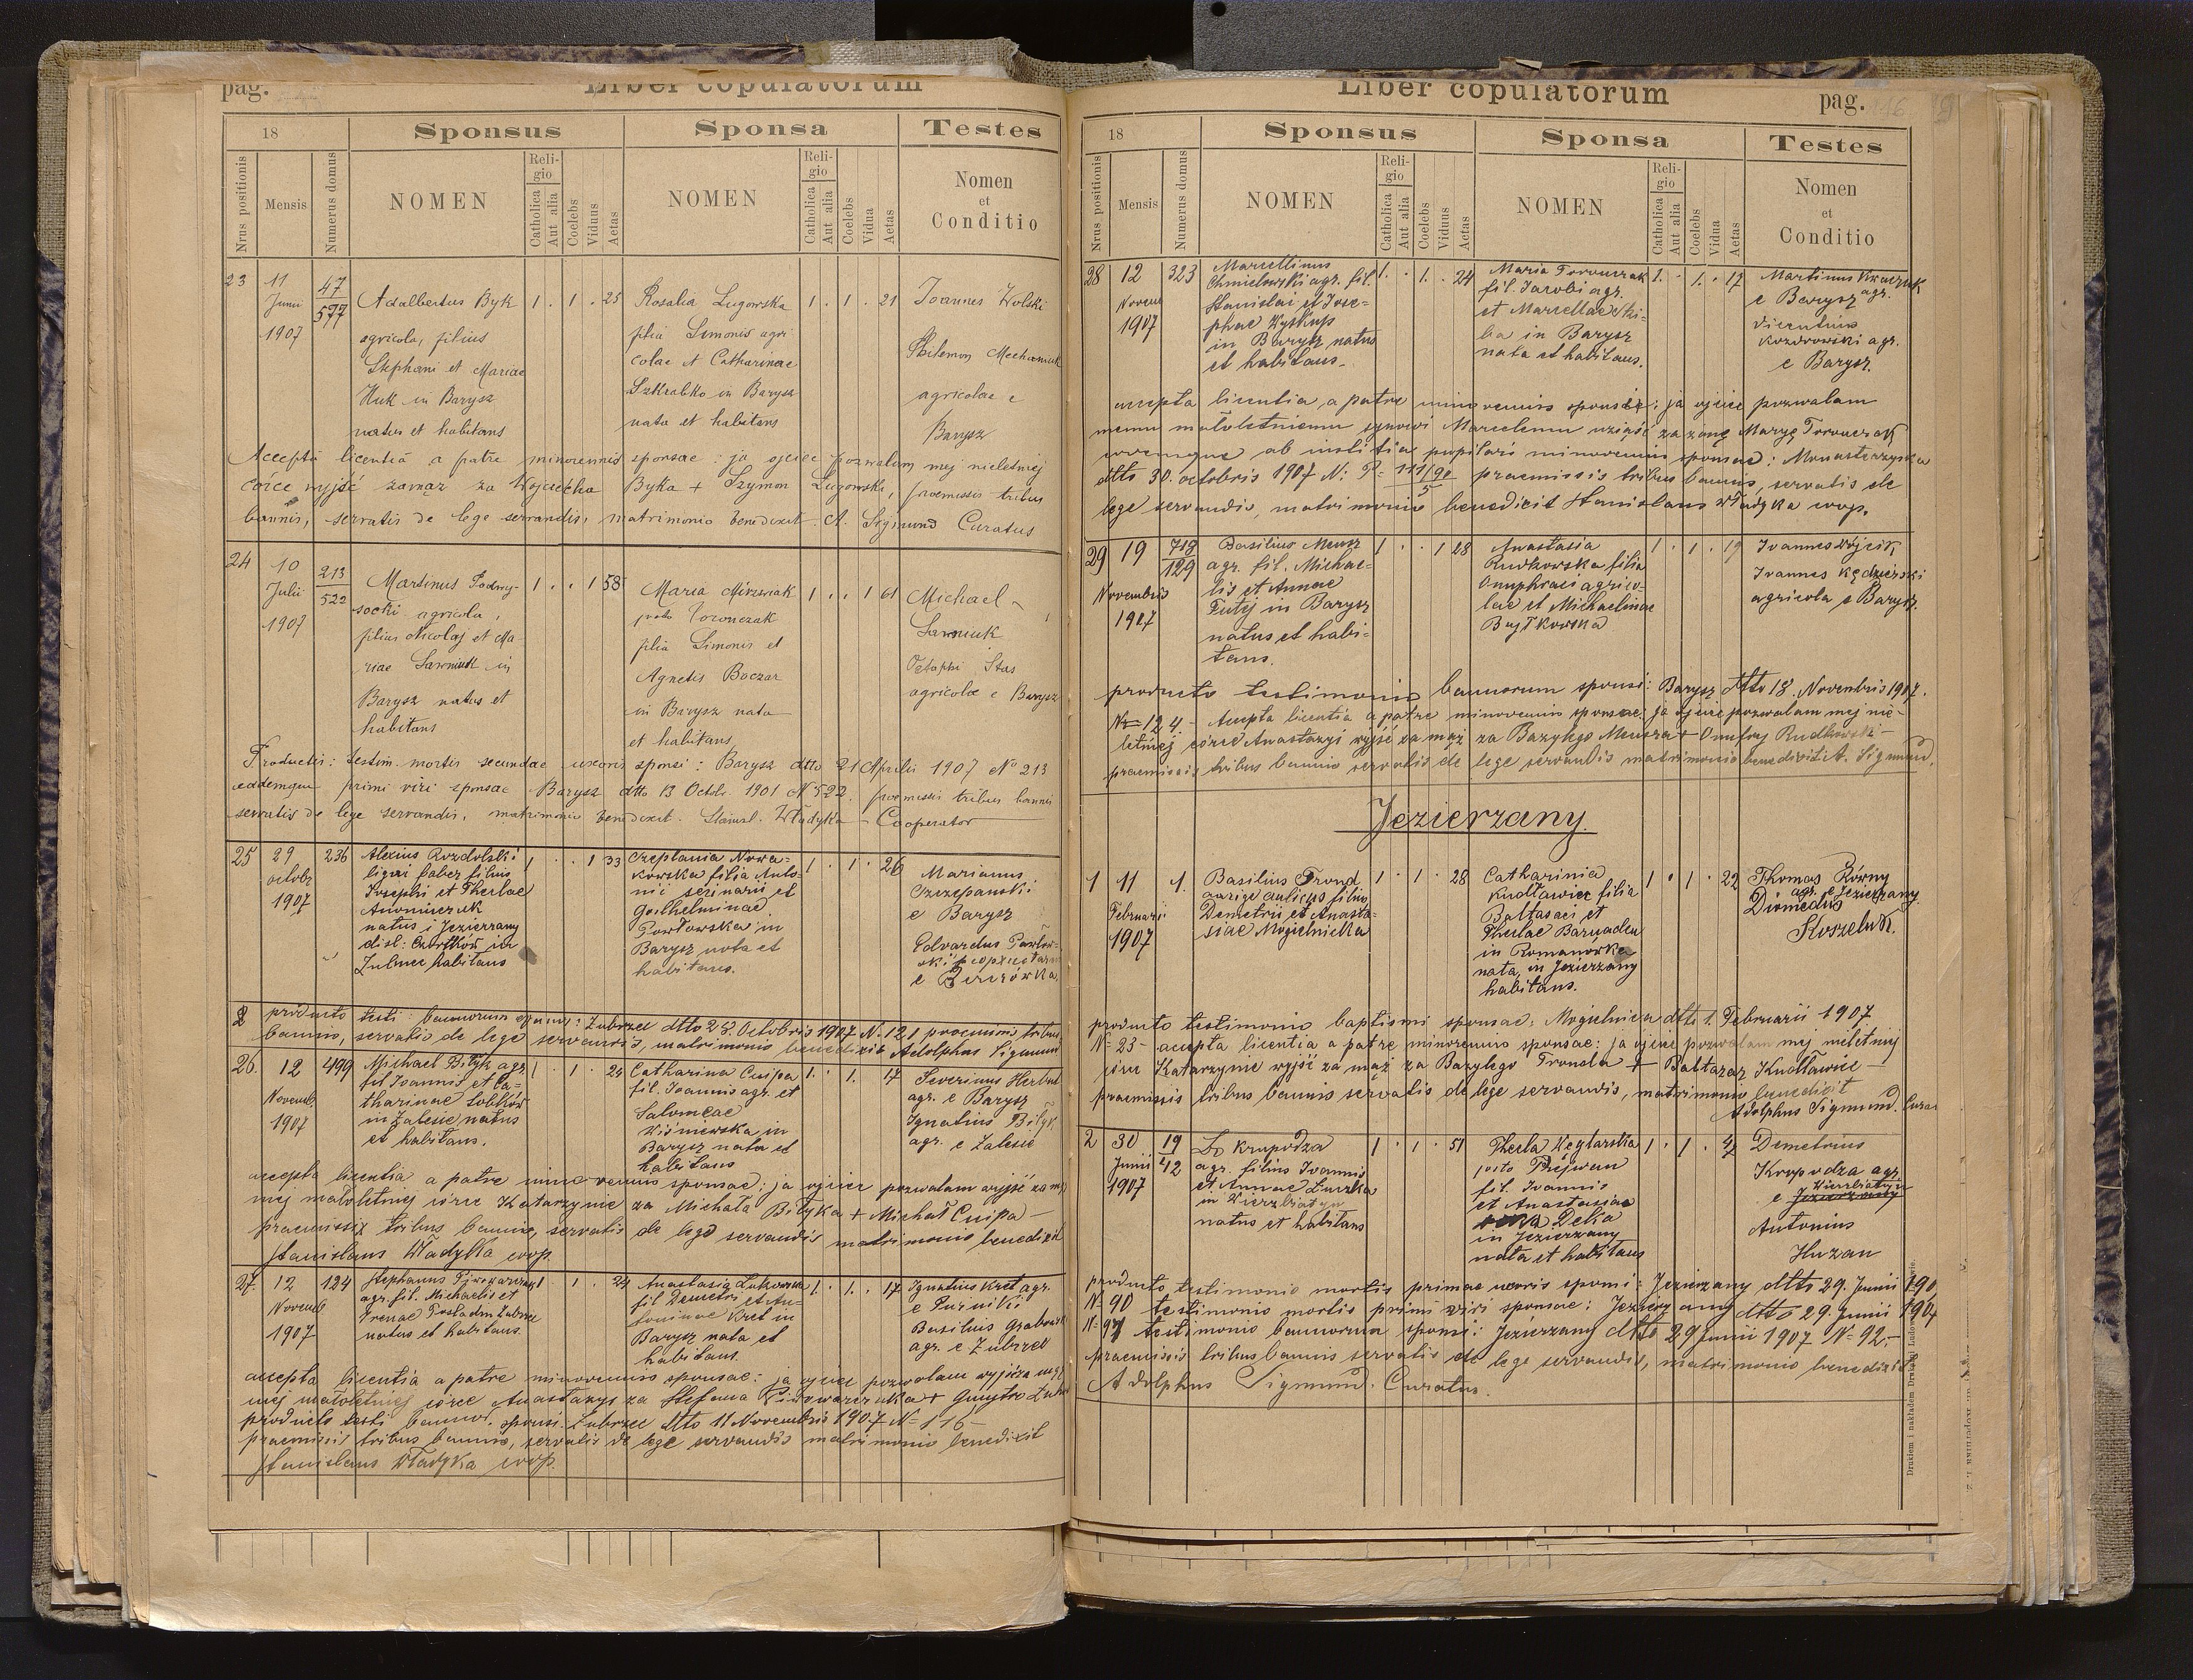 pag.
Liber copulatorum
18
Sponsus
Sponsa
Testes
Nrus positionis
Mensis
Numerus domus
NOMEN
Religio
Catholica
Aut alia
Coelebs
Viduus
Aetas
NOMEN
Religio
Catholica
Aut alia
Coelebs
Vidua
Aetas
Nomen
et
Conditio
23
11
Junii
1907
47
577
Adalbertus Byk
agricola, filius
Stephani et Mariae
Huk in Barysz
natus et habitans
1 . 1 . 25
Rosalia Lugowska
filia Simonis agri
colae et Catharinae
Szkrabko in Barysz
nata et habitans
1 . 1 . 21
Joannes Wolski
Philemon Mechaniuk
agricolae e
Barysz
Acceptâ licentiâ a patre minorennis sponsae : ja ojciec pozwalam mej nieletniej
córce wyjść zamąż za Wojciecha Byka + Szymon Lugowski, praemissis tribus
bannis, servatis de lege servandis, matrimonio benedixit. A. Sigmund Curatus
24
10
Julii
1907
213
522
Martinus Podwy-
socki agricola,
filius Nicolai et Ma-
riae Sawniuk in
Barysz natus et
habitans
1 . . 1 58
Maria
filia Simonis et
Agnetis Boczar
in Barysz nata
et habitans
1 . . 1 61
Michael
Sawniuk
Stas
agricolae e Barysz
Productis : testim. mortis secundae uxoris sponsi : Barysz dtto 21 Aprilis 1907 No 213
eademque primi viri sponsae Barysz dtto 13 Octobr. 1901 No 522. praemissis tribus bannis
servatis de lege servandis, matrimonio benedixit. Stanisl. Władyka - Cooperator
25
29
octobr
1907
236
Alexius Rozdolski
ligni faber filius
Josephi et Theclae
natus i Jezierzany
dist: Czortków in
Zubrzec habitans
1 . . 1 33
Nowa-
kowska filia Anto-
nii et
Guilhelminae
Pawłowska in
Barysz nata et
habitans.
1 . 1 . 26
Marianus
Szczepanski
e Barysz
Edvardus Pawłow-
ski
e
producto testi: bannorum sponsi: Zubrzec dtto 28. Octobris 1907 N. 121 praemissis tribus
bannis, servatis de lege servandis, matrimonio benedixit Adolphus Sigmund
26.
12
Novemb.
1907
499
Michael Bilyk agr.
fil Joannis et Ca-
tharinae Sobków
in Zalesie natus
et habitans.
1 . 1 . 24
Catharina Cuipa
fil. Joannis agr. et
Salomeae
Wiśniewska in
Barysz nata et
habitans
1. . 1. . 17
Severinus Herbut
agr. e Barysz
Ignatius Bilyk
agr. e Zalesie
accepta licentia a patre minorennis sponsae: ja ojciec pozwalam wyjść za mąż
mej małoletniej córce Katarzynie za Michała Bilyka + Michał Cuipa -
praemissis tribus bannis, servatis de lege servandis matrimonio benedixit
Stanislaus Władyka coop.
27.
12
Novemb
1907
124
Stephanus
agr. fil. Michaelis et
Irenae in Zubrzec
natus et habitans.
1 . 1 . 24
Anastasia
fil Demetri et An-
toninae Kret in
Barysz nata et
habitans.
1. . 1. . 17
Ignatius Kret agr.
e
Basilius
agr. e Zubrzec
accepta licentiâ a patre minorennis sponsae: ja ojciec pozwalam wyjść za mąż
mej małoletniej córce Anastazyi za Stefana +
producto testi bannor. sponsi Zubrzec dtto 11 Novembris 1907 N= 116 -
praemissis tribus bannis, servatis de lege servandis matrimonio benedixit
Stanislaus Władyka coop.
Liber copulatorum
pag.
18
Sponsus
Sponsa
Testes
Nrus positionis
Mensis
Numerus domus
NOMEN
Religio
Catholica
Aut alia
Coelebs
Viduus
Aetas
NOMEN
Religio
Catholica
Aut alia
Coelebs
Vidua
Aetas
Nomen
et
Conditio
28
12
Novem
1907
323
Marcellinus
Chmielowski agr. fil.
Stanislai et Jose-
phae Wyskup
in Barysz natus
et habitans.
1. . 1. . 24
Maria Towurzak
fil. Jacobi agr.
et Marcellae Ski-
ba in Barysz
nata et habitans.
1. . 1. . 17
Martinus
e Barysz agr.
Vicentius
Kozorowski agr.
e Barysz.
accepta licentia, a patre minorennis sponsi: ja ojciec pozwalam
memu małoletniemu synowi Marcelemu wziąść za żonę Maryę
ab instantia pupilari minorennis sponsae: Monasterzyska
dtto 30. octobris 1907 N: P. 111/90 5 praemissis tribus bannis, servatis de
lege servandis, matrimonio benedixit Stanislaus Władyka coop.
29
19
Novembris
1907
718
129
Basilius Mensz
agr. fil. Michae-
lis et Annae
Futij in Barysz
natus et habi-
tans.
1 . . 1 28
Anastasia
Rudkowska filia
Onuphrii agrico-
lae et Michaelinae
Bujtkowska
1 . 1 . 19
Joannes Wójcik
Joannes Kędzierski
agricola e Barysz
producto testimonio bannorum sponsi: Barysz dtto 18. Novembris 1907.
No 124 - Accepta licentia a patre minorennis sponsae: ja ojciec pozwalam mej nie-
letniej córce Anastazyi wyjść za mąż za Bazylego Mensza + Onufry Rudkowski -
praemissis tribus bannis servatis de lege servandis matrimonio benedixit A. Sigmund.
Jezierzany.
1
11
Februarii
1907
1.
Basilius Trond
auriga aulicus filius
Demetrii et Anasta-
siae Mogielnicka
1 . 1 . 28
Catharinia
Kudławiec filia
Baltasari et
Theclae
in Romanówka
nata, in Jezierzany
habitans.
1 . 1 . 22
Thomas Równy
agr. e Jezierzany.
Diomedius
Koszeluk.
producto testimonio baptismi sponsae: Mogielnica dtto 1. Februarii 1907
N= 23 - accepta licentia a patre minorennis sponsae: ja ojciec pozwalam mej nieletniej
córce Katarzynie wyjść za mąż za Bazylego Tronda + Baltazar Kudławiec -
praemissis tribus bannis servatis de lege servandis, matrimonio benedixit
Adolphus Sigmund. Curat
2
30
Junii
1907
19
42
Krupodza
agr. filius Joannis
et Annae Luczka
in Wierzbiatyn
natus et habitans
1 . 1 . 51
Thecla Węglarska
fil. Joannis
et Anastasiae
Deka
in Jezierzany
nata et habitans
1 . 1 .
Demetrius
Krupodza agr.
Wierzbiatyn
e Jezierzany
Antonius
Huzan
producto testimonio mortis primae uxoris sponsi: Jezierzany dtto 29. Junii 190
N= 90 testimonio mortis primi viri sponsae: Jezierzany dtto 29. Junii 1907
N= 91 testimonio bannorum sponsi: Jezierzany dtto 29 Junii 1907 N= 92.-
praemissis tribus bannis servatis de lege servandis, matrimonio benedixit
Adolphus Sigmund. Curatus.